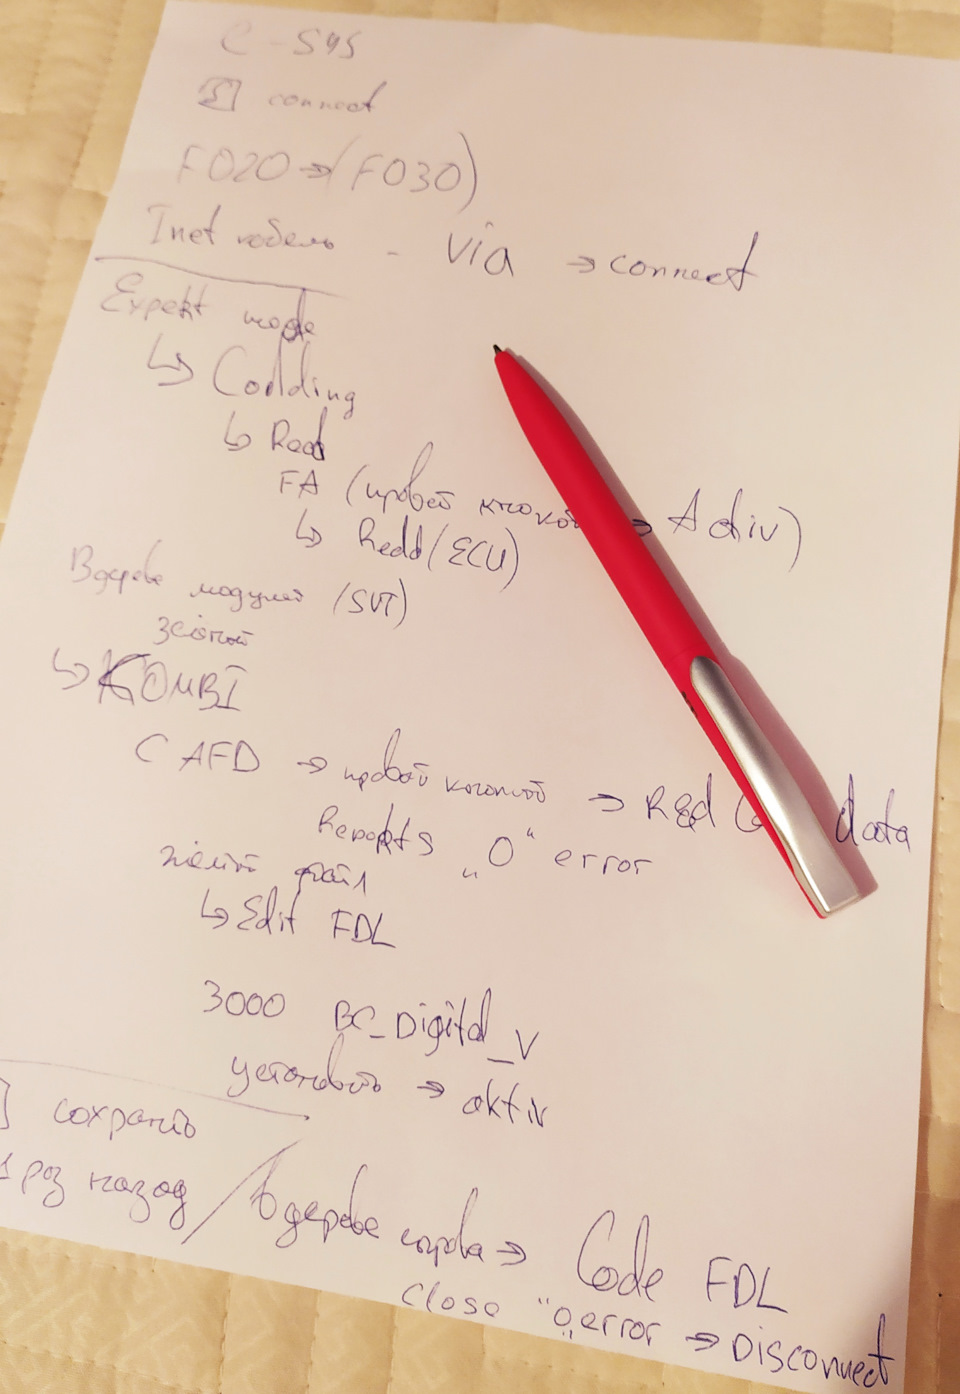 C-sys
connect
F020 → (F030)
Inet кабель - via → connect
Expert mode
↳ Codding
↳ Read
FA (правой кнопкой → Activ)
↳ Read (ECU)
В дереве модулей (SVT)
зелёный
↳ KOMBI
CAFD → правой кнопкой → Read data
Reports „0“ error
жёлтый файл
↳ Edit FDL
3000 BC_Digital_V
установить → aktiv
сохранить
1 раз назад / в дереве справа → Code FDL
Close "0" error → Disconnect